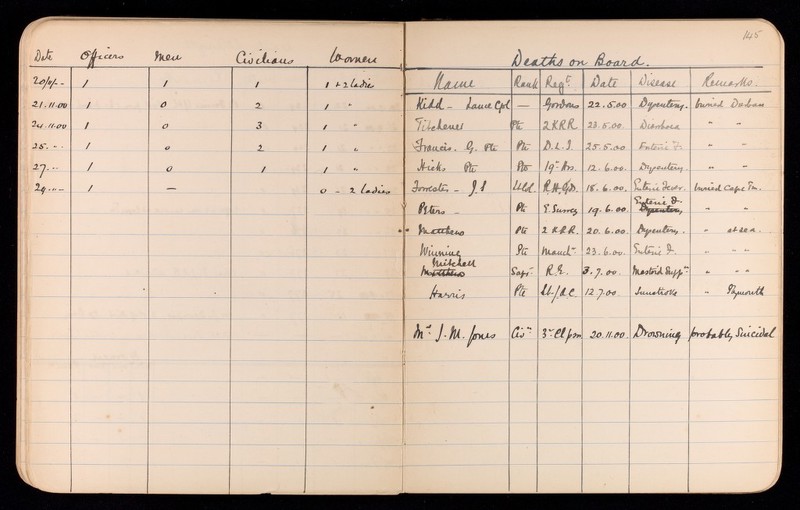 Date Officers Men Civilians Women
20/11/- 1 1 1 1 + 2 ladies
21.11.00 1 0 2 1 "
24.11.00 1 0 3 1 "
25. " " 1 0 2 1 "
27. " " 1 0 1 1 "
29. " - 1 - 0 - 2 ladies
145
Deaths on Board.
Name Rank Regt. Date Disease Remarks.
Kidd - Lance Cpl - Gordons 22.5.00 Dysentery. buried Durban
Titchener Pte 2 KRR 23.5.00 Diarrhoea " "
Francis. G. Pte Pte D.L.I. 25.5.00 Enteric F. " "
Hicks Pte Pte 19th Hrs. 12.6.00 Dysentery. " "
Forrester - J.S 18.6.00. Enteric Fever. buried Cape Tn.
Peters - Pte E. Surrey 19.6.00 Enteric F. Dysentery " "
Matthews Pte 2 KRR. 20.6.00 Dysentery. " at sea.
Winning Pte Manchr. 23.6.00 Enteric F. " " "
Mitchell
Matthews Sapr. R.E. 3.7.00 Mastoid Suppn. " " "
Harris Pte 12.7.00 Sunstroke " Plymouth
Mr. J. M. Jones Civn. 3rd Cl 20.11.00 Drowning probably Suicidal